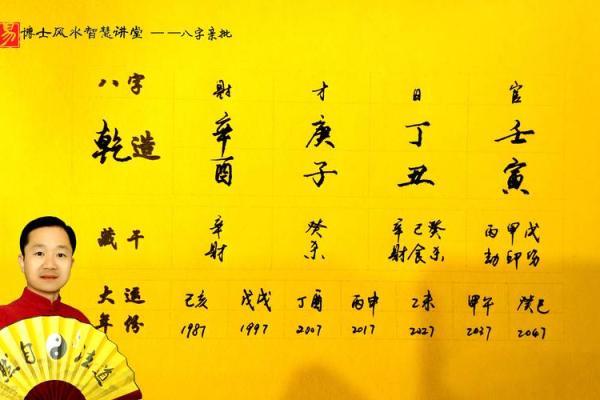 易 博士风水智慧讲堂 ——八字亲批
八字 财 才 日 官
乾造 辛酉 庚子 丁丑 壬寅
藏干 辛 癸 辛己癸 丙甲戊
财 杀 财食杀 劫印伤
大运 己亥 戊戌 丁酉 丙申 乙未 甲午 癸巳
年份 1987 1997 2007 2017 2027 2037 2047
自 法道